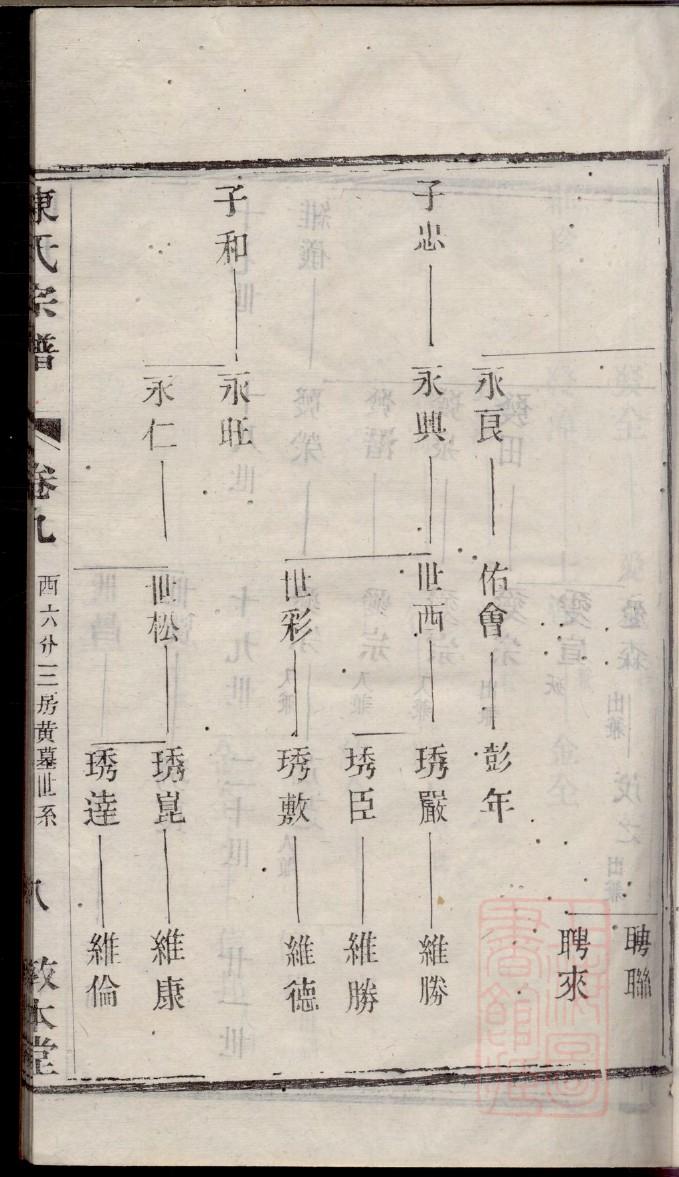 聘聯
聘來
永良 佑會 彭年
子忠 永興 世西 琇嚴 維勝
琇臣 維勝
世彩 琇敷 維德
子和 永旺
永仁 世松 琇崑 維康
琇達 維倫
陳氏宗譜 卷九 西六分三房黄墓世系 八 敦本堂